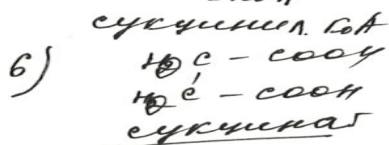 сукцинил КоА
6) H₂C – COOH
H₂C – COOH
сукцинат